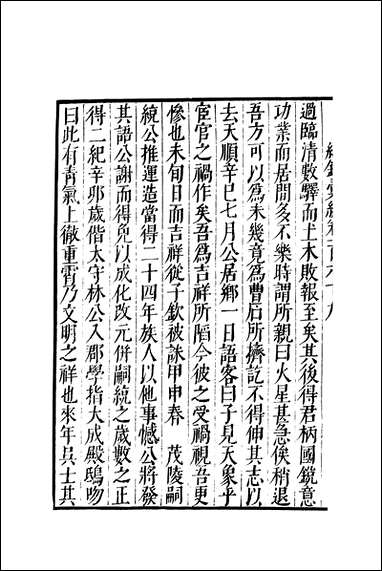 過臨清數驛而土木敗報至矣其後得君柄國鏡意
功業而居間多不樂時謂所親曰火星甚急俟稍退
吾方可以為未幾竟為曹石所擠訖不得伸其志以
去天順辛巳七月公居鄉一日語客曰子見天象乎
宦官之禍作矣吾為吉祥所陷今彼之受禍視吾更
慘也未旬日而吉祥從子欽被誅甲申春　茂陵嗣
統公推運造當得二十四年族人以他事憾公將發
其語公謝而得免以成化改元併嗣統之歲數之正
得二紀辛卯歲偕太守林公入郡學指大成殿鴟吻
曰此有青氣上徹重霄乃文明之祥也來年吳士其